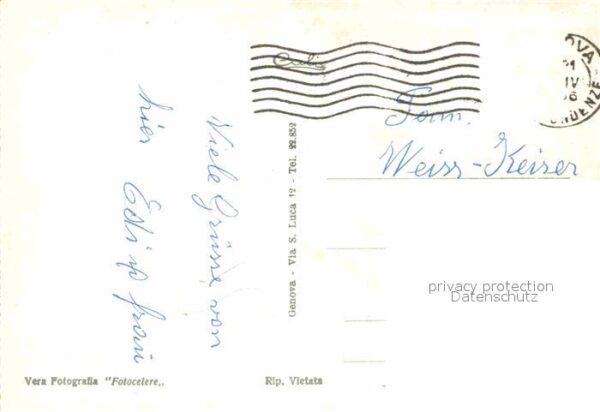 Viele Grüsse von
hier Edi u frau
Fam.
Weiss-Keiser
Genova - Via S. Luca 12 - Tel. 22.852
Vera Fotografia "Fotocelere„
Rip. Vietata
privacy protection
Datenschutz
OVA
IV